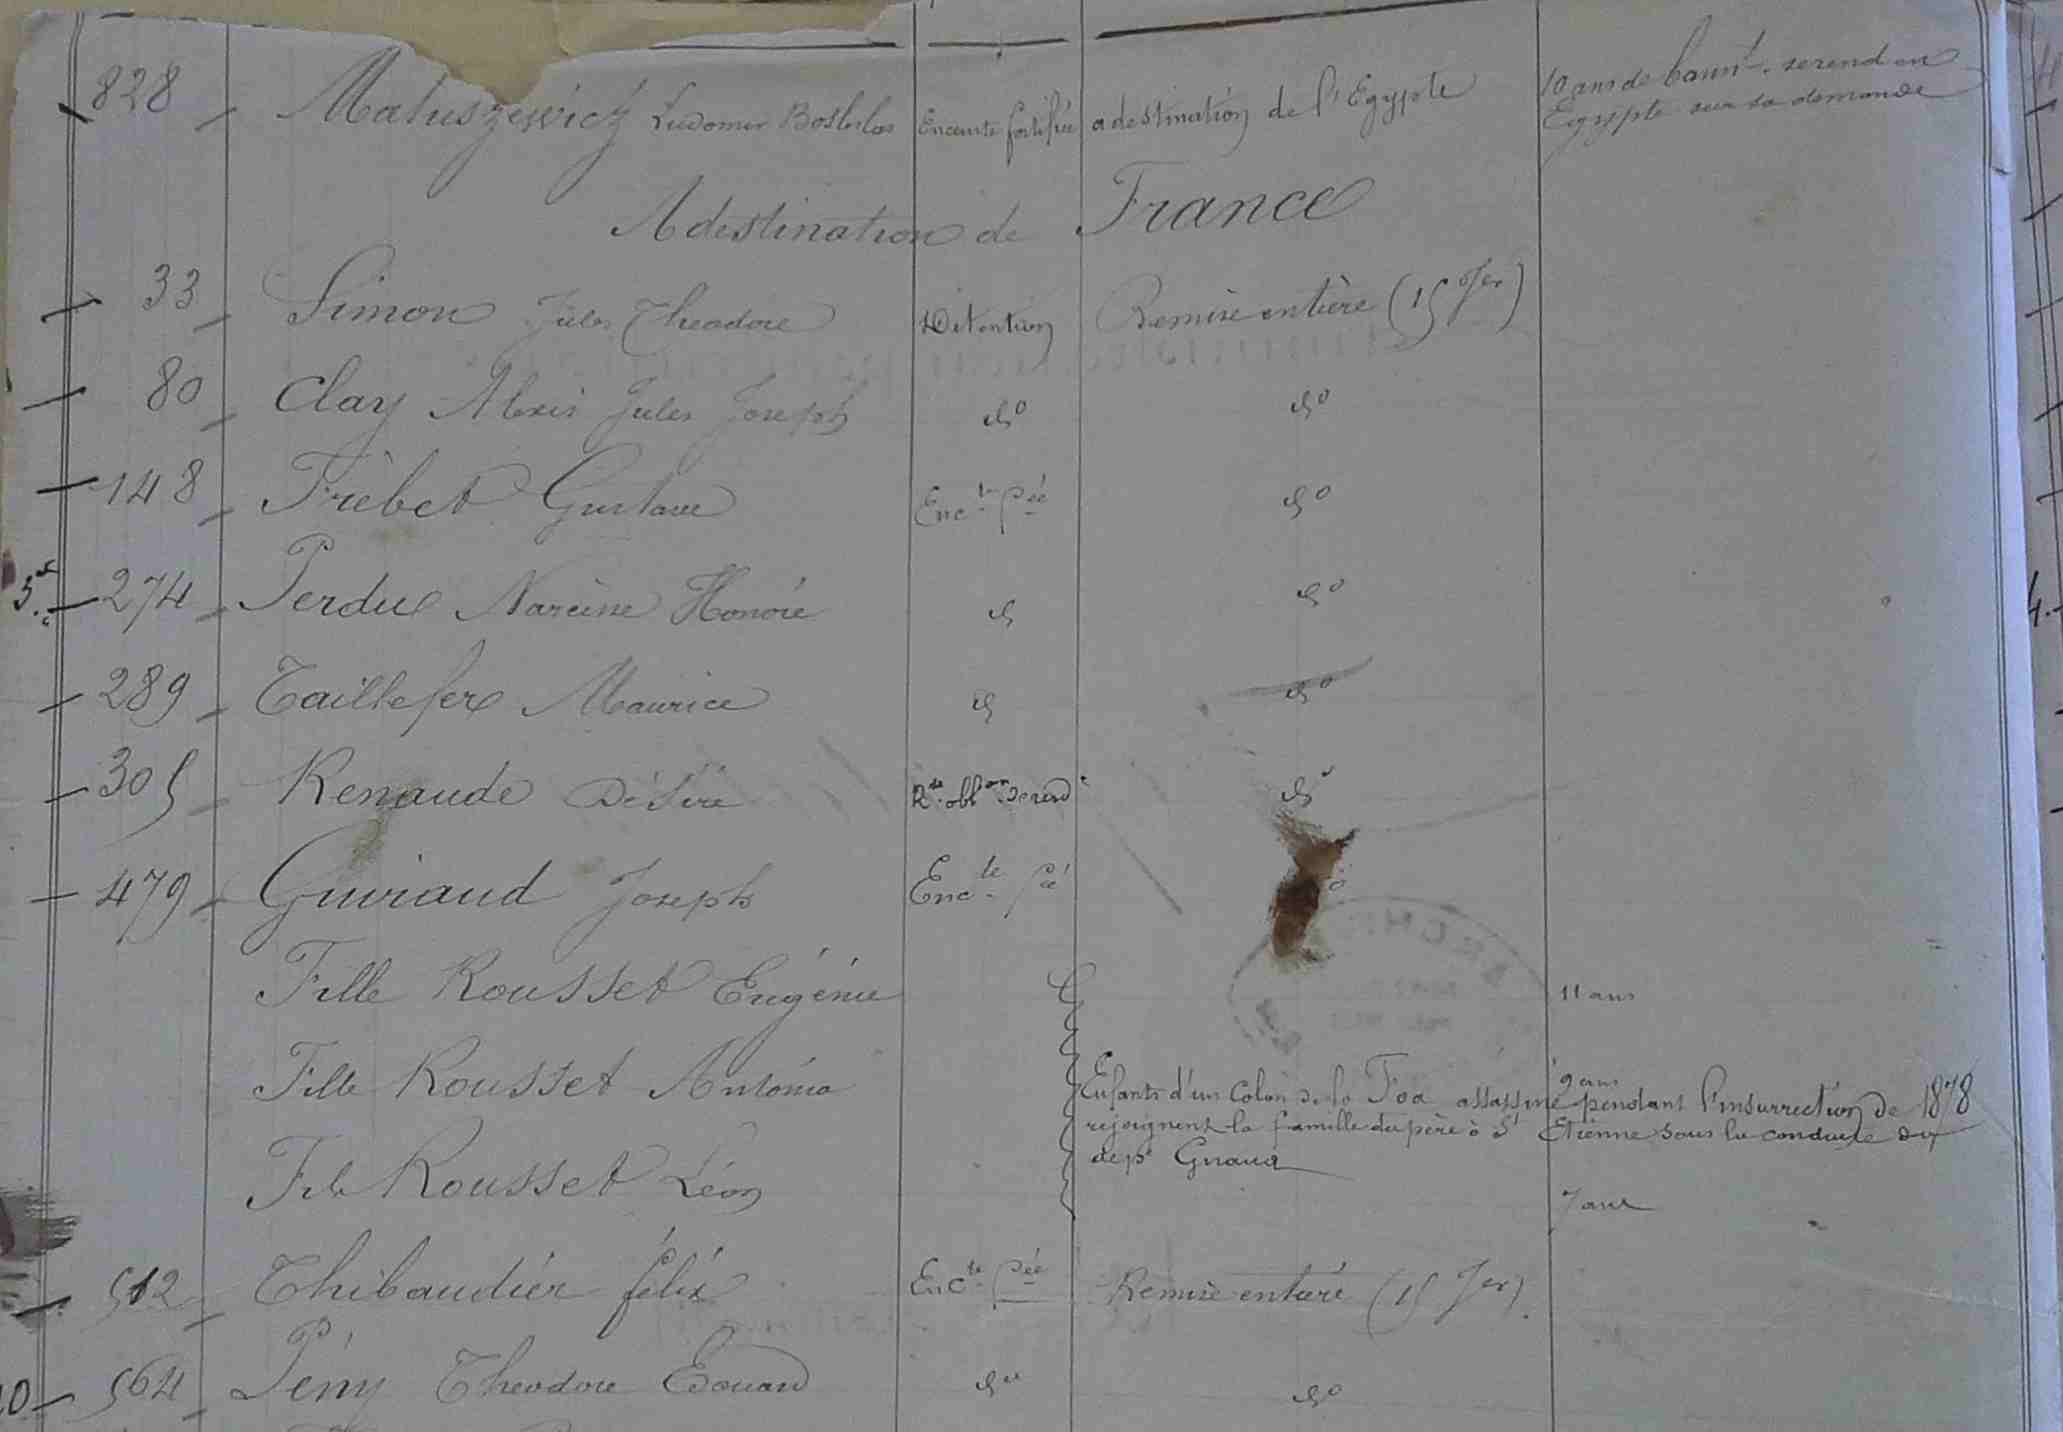 828 Matuszewicz Ludomir Enceinte fortifiée a destination de l'Egypte 10 ans de bannt. se rend en
Egypte sur sa demande
A destination de France
33 Simon Jules Theodore Détention Remise entière (15 Jer)
80 Clay Alexis Jules Joseph do do
148 Trèbet Gustave Encte fée do
274 Perdue Narcisse Honoré d do
289 Taillefer Maurice d do
305 Renaude Désiré do
479 Guiraud Joseph Encte fée
Fille Rousset Eugénie 11 ans
Fille Rousset Antonia 9 ans
Enfants d'un Colon de la Foa assassiné pendant l'insurrection de 1878
rejoignent la famille du père à St Etienne sous la conduite du
dépé Giraud
Fils Rousset Léon 7 ans
512 Thibaudier félix Encte fée Remise entière (15 Jer).
564 Pény Theodore Edouard do do